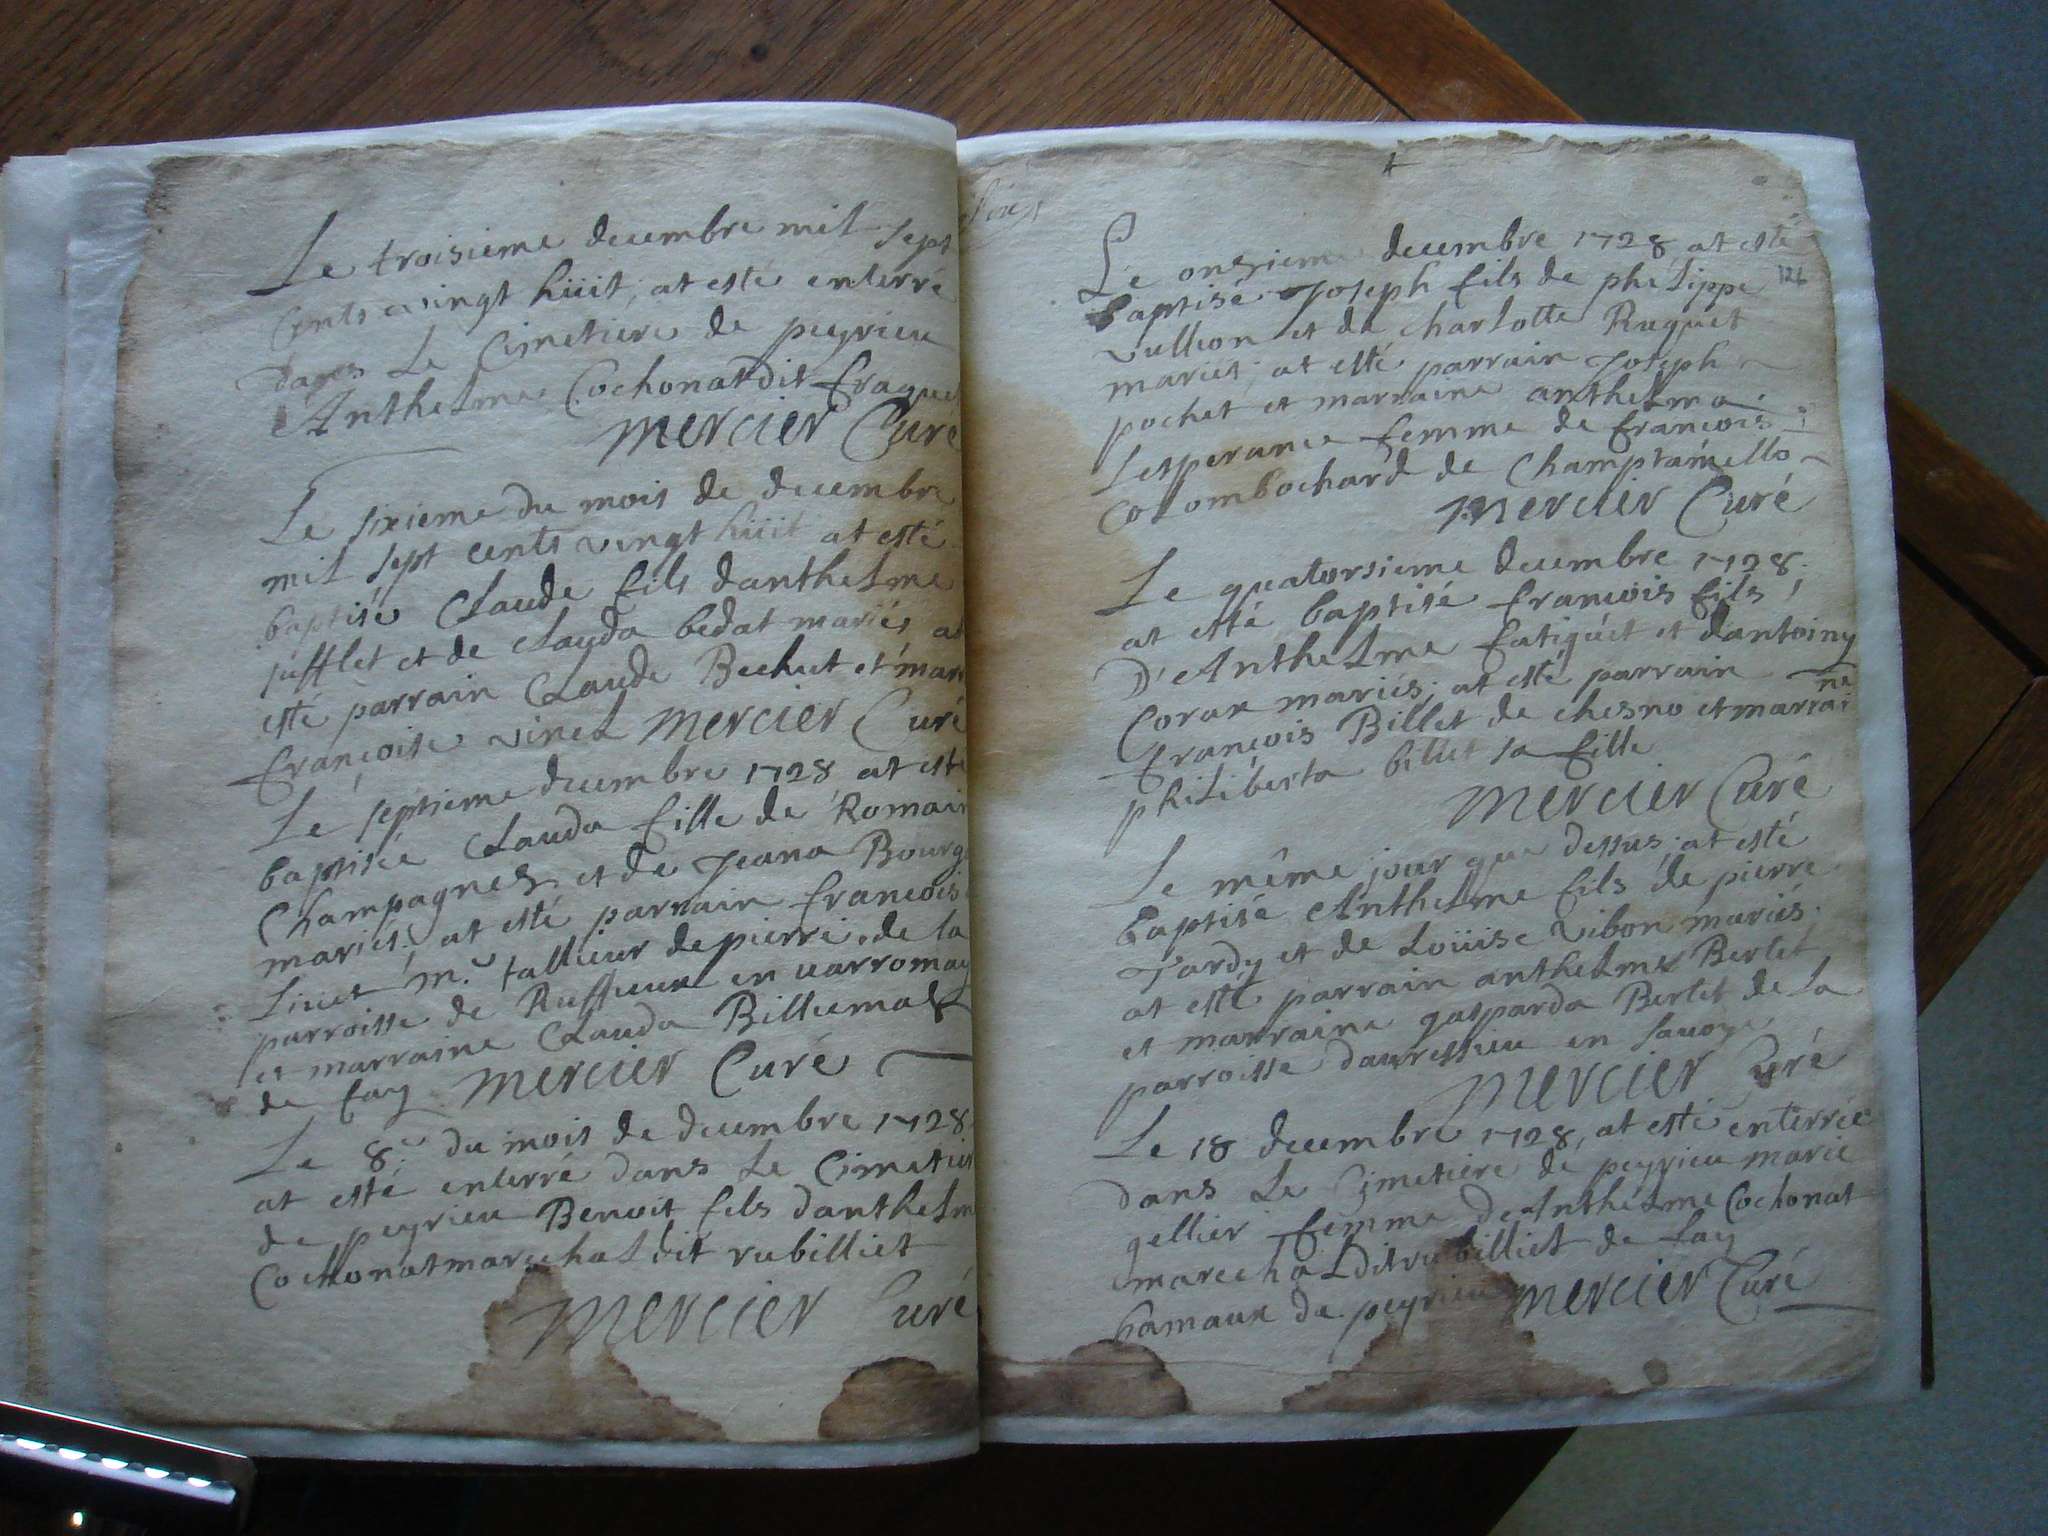 Le troisieme decembre mil sept
cents vingt hüit, at esté enterré
dans Le Cimetiere de peyrieu
Anthelme Cochonat dit fraque
Mercier Curé
Le sixieme du mois de decembre
mil sept cents vingt hüit at esté
baptisé Claude fils danthelme
sufflet et de Clauda bedat mariés at
esté parrain Claude Bechet et mar
françoise vinel Mercier Curé
Le septieme decembre 1728 at esté
baptisée Clauda fille de Romain
Champagnes, et de Jeana Bourg
mariés; at esté parrain francois
M.e tallieur de pierre, de la
parroisse de Ruffieux en varromay
et marraine Clauda Billiemas
de fay Mercier Curé
Le 8.e du mois de decembre 1728
at esté enterré dans Le Cimetier
de peyrieu Benoit fils danthelm
Cochonat marechal dit rubilliet
Mercier Curé
Le onzieme decembre 1728 at esté
126
baptisé Joseph fils de philippe
vullion et de Charlotte Ruguet
mariés; at esté parrain Joseph
pochet et marraine anthelma
Lesperance femme de francois
Colombochard de Champtamello
Mercier Curé
Le quatorsieme decembre 1728
at esté baptisé francois fils
D'Anthelme fatiguet et dantoiny
Coran mariés; at esté parrain
françois Billet de chesno et marrai
ne
philiberta billet sa fille
Mercier Curé
Le même jour que dessus; at esté
baptisé Anthelme fils de pierre
Tardy et de Loüise vibon mariés
at esté parrain anthelme Berlet
et marraine gasparda Berlet de la
parroisse dauressieu en savoye
Mercier Curé
Le 18 decembre 1728, at esté enterrée
dans Le Cimetiere de peyrieu marie
gellier femme de Anthelme Cochonat
marechal dit rubilliet de fay
hamaux de peyrieu Mercier Curé